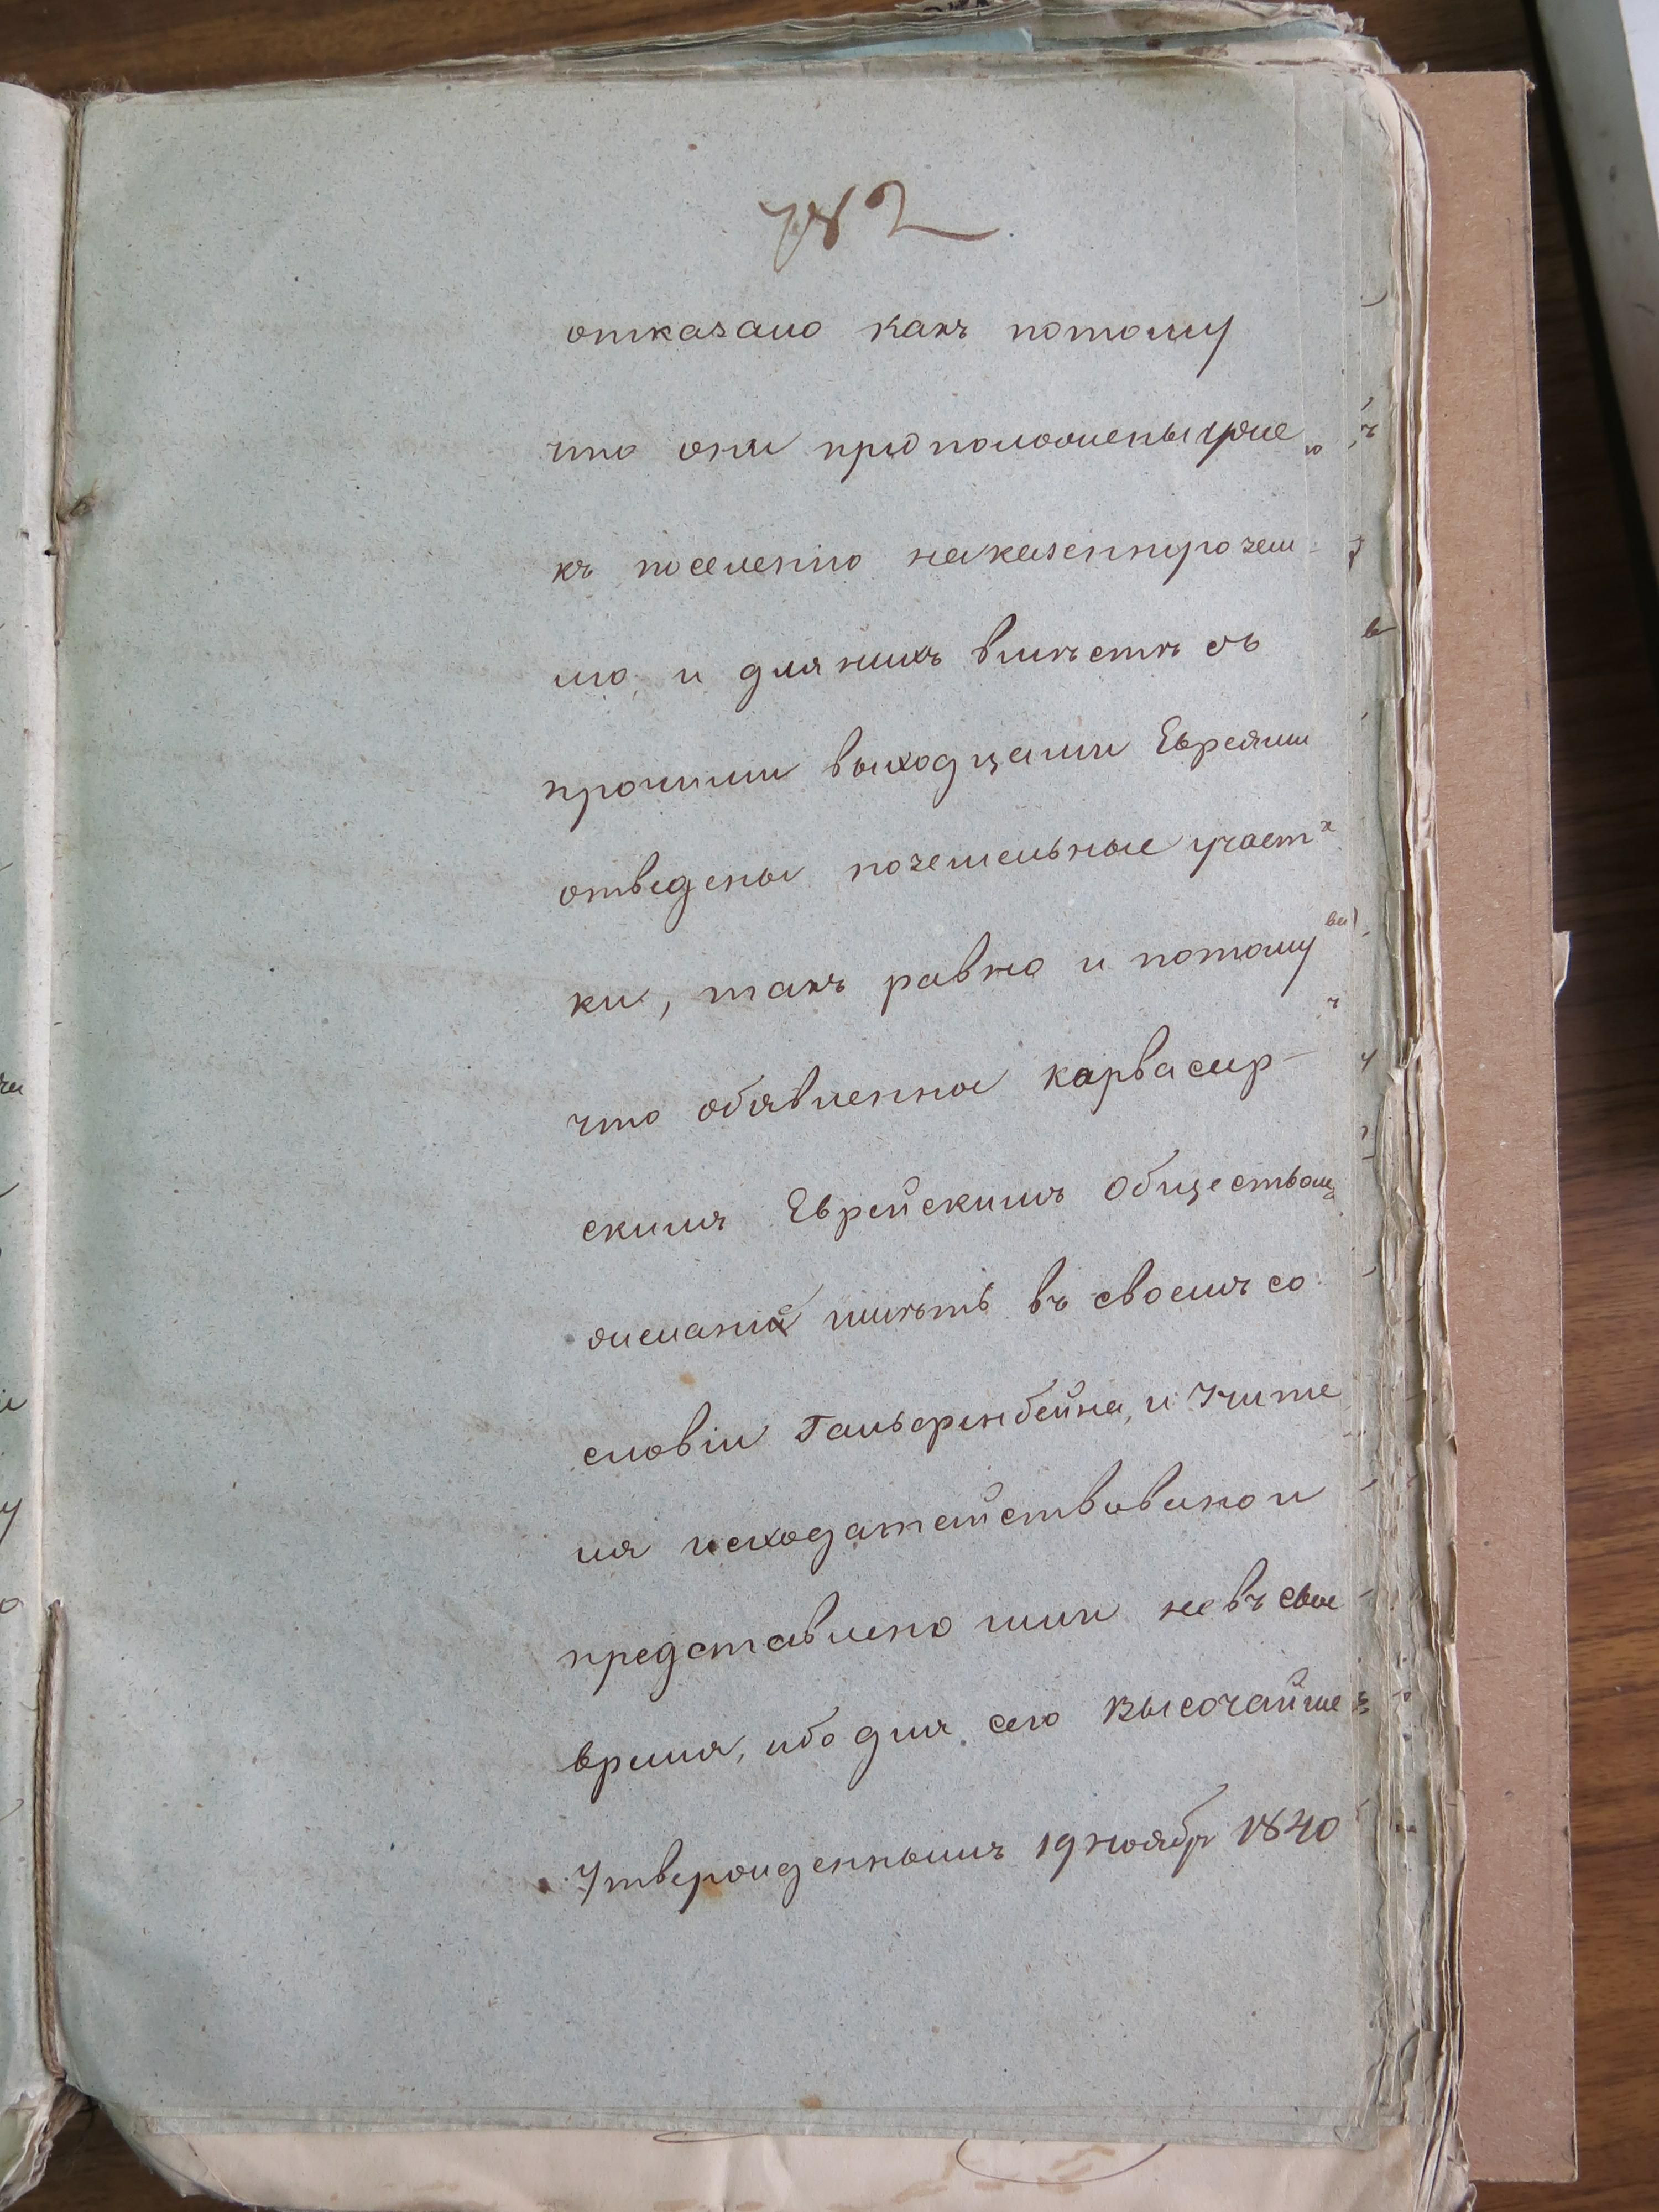 782
отказано какъ потому
что они предположены уже
къ поселенію на казенную зем-
лю, и для нихъ вместѣ съ
прочими выходцами Евреями
отведены поземельные участ
ки, такъ равно и потому
что объявленное карвасар-
скимъ Еврейскимъ Обществомъ
желаніе имѣть въ своемъ со
словіи Гальферинбейна, и Учите
ля исходатайствовано и
представлено ими не въ свое
время, ибо для сего Высочайше
Утвержденнымъ 19 ноября 1840